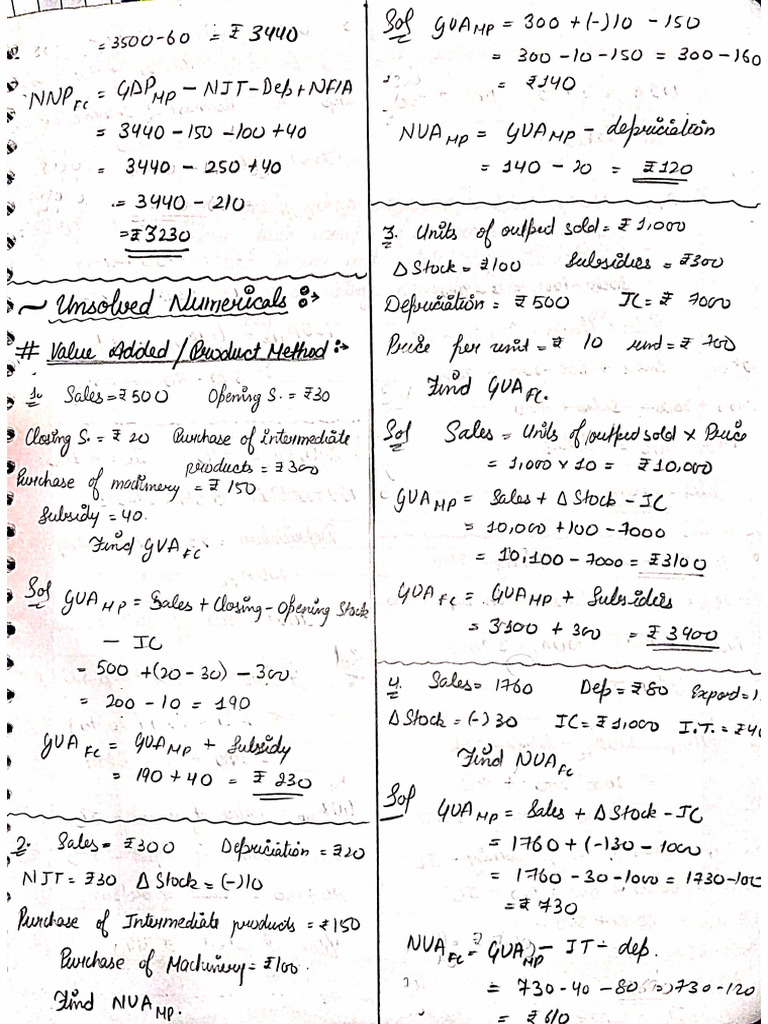 = 3500 - 60 = ₹ 3440
NNP FC = GDP MP - NIT - Dep + NFIA
= 3440 - 150 - 100 + 40
= 3440 - 250 + 40
= 3440 - 210
= ₹ 3230
~ Unsolved Numericals :→
# Value Added / Product Method :→
1. Sales = ₹ 500 Opening S. = ₹ 30
Closing S. = ₹ 20 Purchase of intermediate
products = ₹ 300
Purchase of machinery = ₹ 150
Subsidy = 40.
Find GVA FC.
Sol GVA MP = Sales + Closing - Opening Stock
- IC
= 500 + (20 - 30) - 300
= 200 - 10 = 190
GVA FC = GVA MP + Subsidy
= 190 + 40 = ₹ 230
2. Sales = ₹ 300 Depreciation = ₹ 20
NIT = ₹ 30 Δ Stock = (-) 10
Purchase of Intermediate products = ₹ 150
Purchase of Machinery = ₹ 100.
Find NVA MP.
Sol GVA MP = 300 + (-) 10 - 150
= 300 - 10 - 150 = 300 - 160
= ₹ 140
NVA MP = GVA MP - depreciation
= 140 - 20 = ₹ 120
3. Units of output sold = ₹ 1,000
Δ Stock = ₹ 100 Subsidies = ₹ 300
Depreciation = ₹ 500 IC = ₹ 7000
Price per unit = ₹ 10 = ₹ 700
Find GVA FC.
Sol Sales = Units of output sold × Price
= 1,000 × 10 = ₹ 10,000
GVA MP = Sales + Δ Stock - IC
= 10,000 + 100 - 7000
= 10,100 - 7000 = ₹ 3100
GVA FC = GVA MP + Subsidies
= 3100 + 300 = ₹ 3400
4. Sales = 1760 Dep = ₹ 80 Export =
Δ Stock = (-) 30 IC = ₹ 1,000 I.T. = ₹ 4
Find NVA FC
Sol GVA MP = Sales + Δ Stock - IC
= 1760 + (-) 30 - 1000
= 1760 - 30 - 1000 = 1730 - 100
= ₹ 730
NVA FC = GVA MP - IT - dep.
= 730 - 40 - 80 = 730 - 120
= ₹ 610